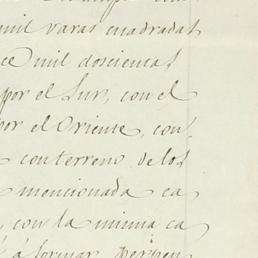 mil varas cuadradas
ce mil doscientas
por el Sur, con el
por el Oriente, con
con terreno de los
mencionada ca
, con la misma ca
á formar perpen